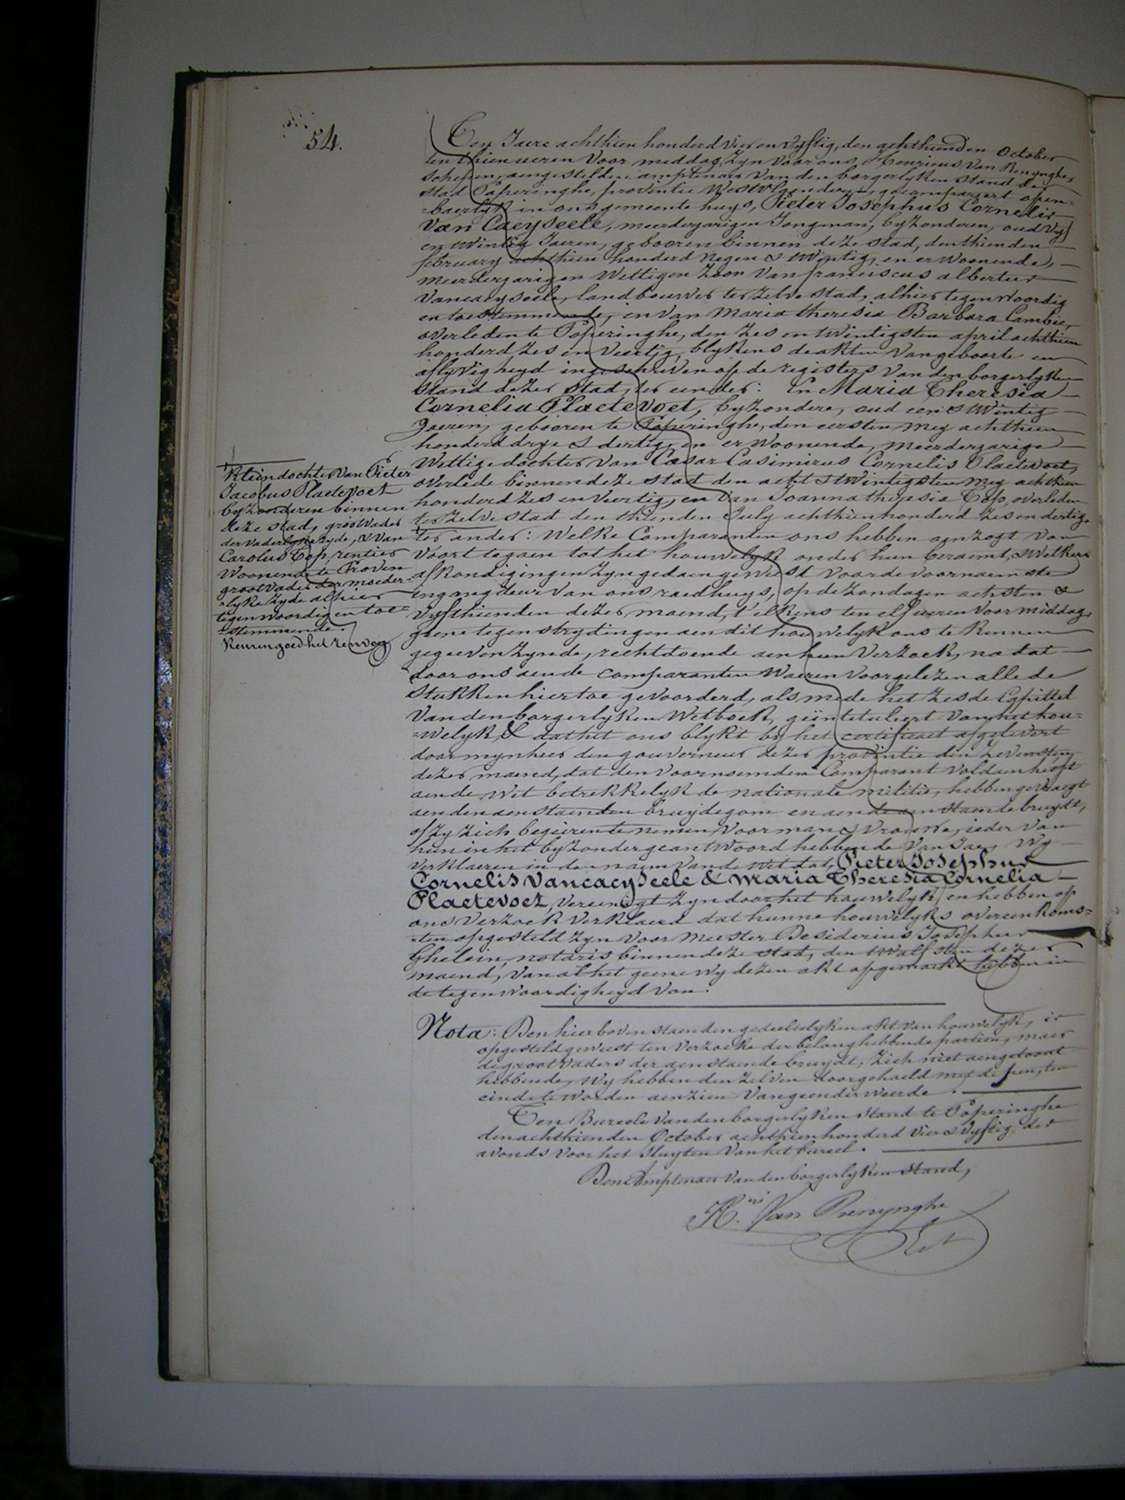 54.
Ten Jaere achthien honderd vier en vyftig, den achthienden October
ten thien ueren voor middag, zyn voor ons, Henricus Van Renynghe,
schepen, aengestelden amptenaer van den borgerlyken stand der
stad Poperinghe, provintie Westvlaenderen, gecompareert open-
=baerlyk in ons gemeente huys, Pieter Josephus Cornelis
Van Caeyseele, meerderjarigen Jongman, byzonderen, oud vyf
en twintig Jaeren, gebooren binnen deze stad, den thienden
february achthien honderd negen & twintig, en er woonende,
meerderjarigen wettigen zoon van franciscus albertus
Vancaeyseele, landbouwer ter zelve stad, alhier tegenwoordig
en toestemmende, en van Maria theresia Barbara Cambie,
overleden te Poperinghe, den zes en twintigsten april achthien
honderd zes en veertig, blykens de akten van geboorte en
aflyvigheyd ingeschreven op de registers van den borgerlyken
stand dezer stad, ter eender: En Maria Theresia
Cornelia Plaetevoet, byzondere, oud een & twintig
Jaeren, gebooren te Poperinghe, den eersten mey achthien
honderd drye & dertig, en er woonende, meerderjarige
Wettige dochter van Cæsar Casimirus Cornelis Plaetevoet,
overlede binnen deze stad den acht & twintigsten mey achthien
honderd zes en veertig, en van Joanna theresia Top, overleden
ter zelve stad den thienden July achthien honderd zes en dertig,
ter ander: Welke Comparanten ons hebben aenzogt van
voort te gaen tot het houwelyk onder hun beraemt, & welkers
afkondigingen zyn gedaen geweest voor de voornaemste
ingangdeur van ons raedhuys, op de zondagen achsten &
vyfthienden dezer maend, telkens ten elf ueren voor middag,
geene tegenstrydingen aen dit houwelyk ons te kennen
gegeven zynde, rechtdoende aen hun verzoek, na dat
door ons aen de comparanten waeren voorgelezen alle de
stukken hier toe gevoorderd, als mede het zesde Capittel
van den borgerlyken Wetboek, geïntituleert van het hou-
=welyk, & dat het ons blykt by het certificaet afgelevert
door mynheer den gouverneur dezer provintie den zevensten
dezer maend, dat den voornoemden Comparant voldaen heeft
aen de wet betrekkelyk de nationale militie, hebben gevraegt
aen den aenstaenden bruydegom en aen de aenstaende bruyd,
of zy zich begeeren te nemen voor man & vrouwe, ieder van
hun in het byzonder geantwoord hebbende van Jae, Wy
verklaeren in den naem van de wet dat, Pieter Josephus
Cornelis Vancaeyseele & Maria Theresia Cornelia
Plaetevoet, vereenigt zyn door het houwelyk, en hebben op
ons verzoek verklaerd dat hunne houwelyks overeenkoms-
=ten opgesteld zyn voor meester Desiderius Josephus
Ghelein, notaris binnen deze stad, den twalfsten dezer
maend, van al het geene wy dezen akt opgemaekt hebben in
de tegenwoordigheyd van:
Kleindochter van Pieter
Jacobus Plaetevoet
byzonderen binnen
deze stad, grootvader
der vaderlyke zyde, & van
Carolus Top, rentier
Woonende te Proven
grootvader der moeder-
=lyke zyde alhier
tegenwoordig en toe-
=stemmende.
Keuren goed het renvoy
Nota: Den hierboven staenden gedeeltelyken akt van houwelyk, is
opgesteld geweest ten verzoeke der belanghebbende partien, maer
de grootvaders der aenstaende bruyd, zich niet aengeboode
hebbende, Wy hebben den zelven doorgehaeld met de pen, ten
einde te worden aenzien van geender weerde.
Ten Bureele van den borgerlyken stand te Poperinghe
den achthienden October achthien honderd vier & vyftig, des
avonds voor het sluyten van het bureel.
Den Amptenaer van den borgerlyken Stand,
H.us Van Renynghe